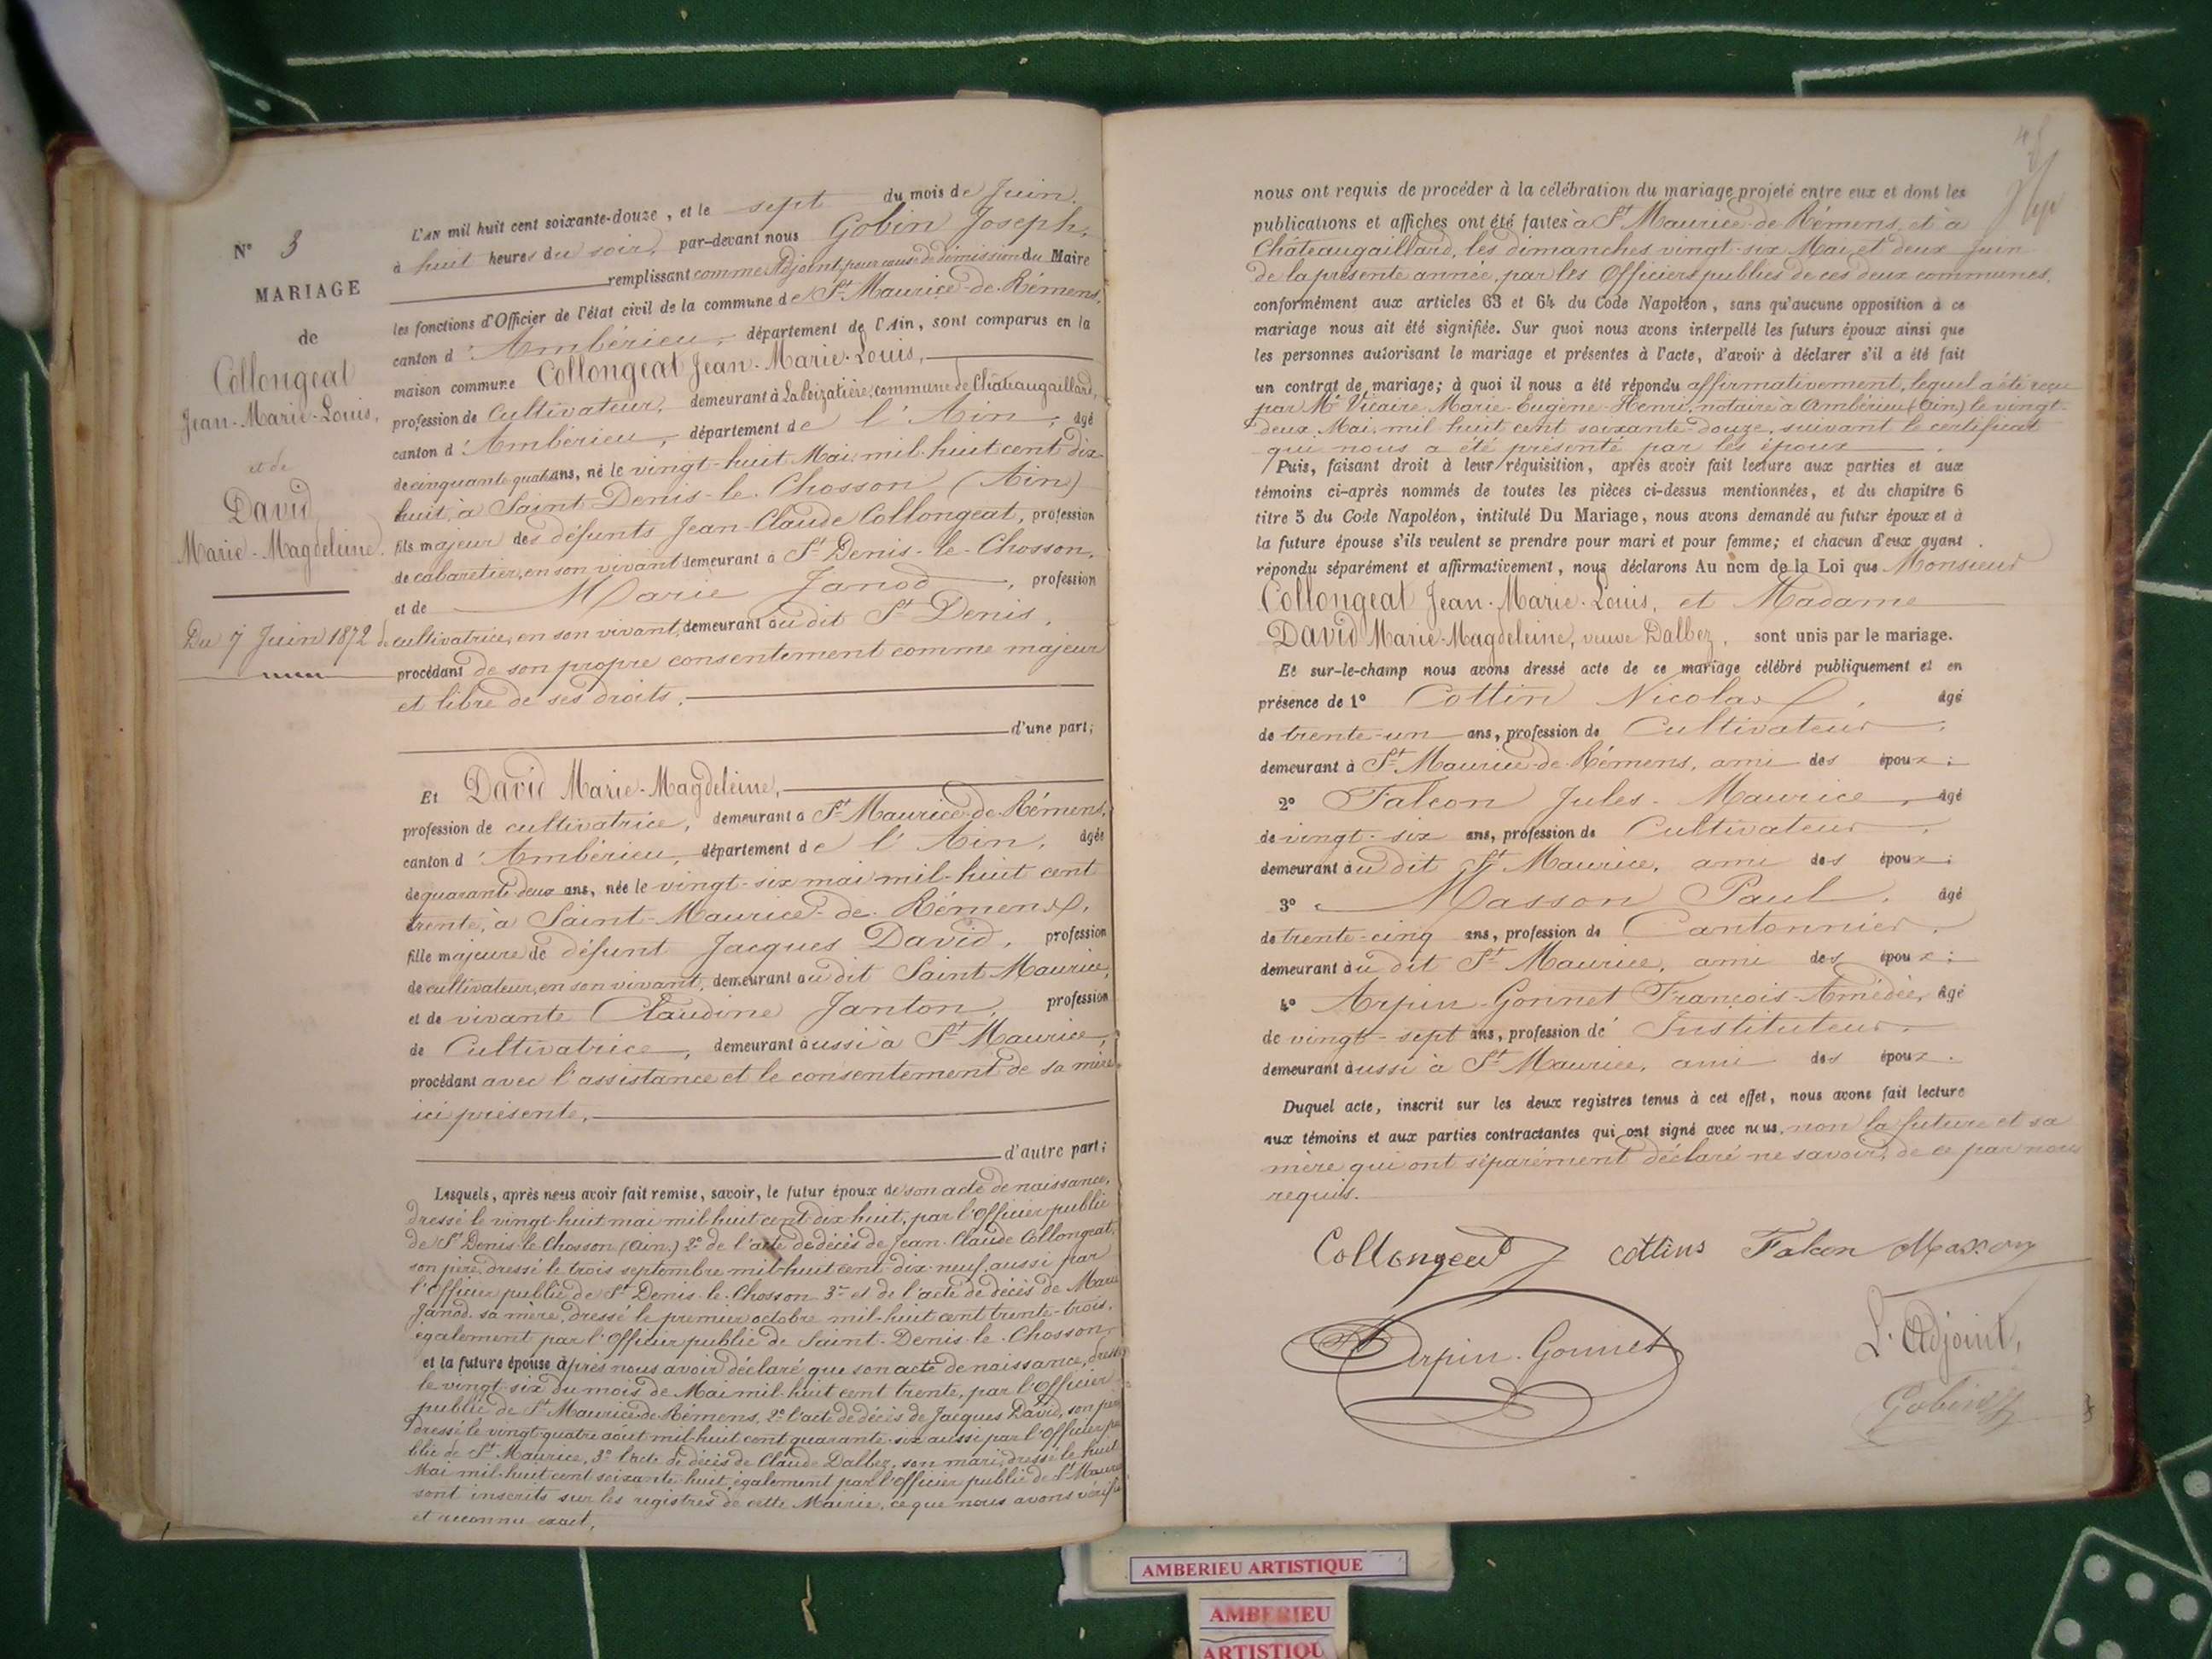 N° 3
MARIAGE
de
Collongeat
Jean-Marie-Louis,
et de
David
Marie-Magdeleine.
Du 7 Juin 1872
L'AN mil huit cent soixante-douze, et le sept du mois de Juin.
à huit heures du soir, par-devant nous Gobin Joseph,
remplissant comme Adjoint, pour cause de démission du Maire
les fonctions d'Officier de l'état civil de la commune de St Maurice-de-Rémens,
canton d'Ambérieu, département de l'Ain, sont comparus en la
maison commune Collongeat Jean-Marie-Louis,
profession de Cultivateur, demeurant à La Boizatière, commune de Châteaugaillard,
canton d'Ambérieu, département de l'Ain, âgé
de cinquante quat ans, né le vingt-huit Mai mil-huit cent dix-
huit, à Saint-Denis-le-Chosson (Ain)
fils majeur des défunts Jean-Claude Collongeat, profession
de cabaretier, en son vivant demeurant à St Denis-le-Chosson,
et de Marie Janod, profession
de cultivatrice, en son vivant, demeurant au dit St Denis,
procédant de son propre consentement comme majeur
et libre de ses droits.
d'une part;
Et David Marie-Magdeleine,
profession de cultivatrice, demeurant à St Maurice-de-Rémens,
canton d'Ambérieu, département de l'Ain, âgée
de quarante-deux ans, née le vingt-six mai mil-huit cent
trente, à Saint-Maurice-de-Rémens,
fille majeure de défunt Jacques David, profession
de cultivateur, en son vivant, demeurant au dit Saint Maurice,
et de vivante Claudine Janton, profession
de Cultivatrice, demeurant aussi à St Maurice,
procédant avec l'assistance et le consentement de sa mère
ici présente,
d'autre part;
Lesquels, après nous avoir fait remise, savoir, le futur époux de son acte de naissance,
dressé le vingt-huit mai mil-huit cent dix-huit, par l'Officier public
de St Denis-le-Chosson (Ain.) 2° de l'acte de décès de Jean-Claude Collongeat,
son père, dressé le trois septembre mil-huit cent dix-neuf, aussi par
l'Officier public de St Denis-le-Chosson 3° et de l'acte de décès de Marie
Janod, sa mère, dressé le premier octobre mil-huit cent trente-trois,
également par l'Officier public de Saint-Denis-le-Chosson
et la future épouse après nous avoir déclaré que son acte de naissance, dressé
le vingt-six du mois de Mai mil-huit cent trente, par l'Officier
public de St Maurice-de-Rémens, 2° l'acte de décès de Jacques David, son père
dressé le vingt-quatre août mil-huit cent quarante-six aussi par l'Officier pu
blic de St Maurice, 3° l'acte de décès de Claude Dalbez, son mari, dressé le huit
Mai mil-huit cent soixante-huit, également par l'Officier public de St Maurice
sont inscrits sur les registres de cette Mairie, ce que nous avons vérifié
et reconnu exact,
nous ont requis de procéder à la célébration du mariage projeté entre eux et dont les
publications et affiches ont été faites à St Maurice-de-Rémens, et à
Châteaugaillard, les dimanches vingt-six Mai et deux Juin
de la présente année, par les Officiers publics de ces deux communes,
conformément aux articles 63 et 64 du Code Napoléon, sans qu'aucune opposition à ce
mariage nous ait été signifiée. Sur quoi nous avons interpellé les futurs époux ainsi que
les personnes autorisant le mariage et présentes à l'acte, d'avoir à déclarer s'il a été fait
un contrat de mariage; à quoi il nous a été répondu affirmativement, lequel a été reçu
par Me Vicaire Marie-Eugène-Henri, notaire à Ambérieu (Ain) le vingt-
deux Mai mil huit cent soixante-douze, suivant le certificat
qui nous a été présenté par les époux.
Puis, faisant droit à leur réquisition, après avoir fait lecture aux parties et aux
témoins ci-après nommés de toutes les pièces ci-dessus mentionnées, et du chapitre 6
titre 5 du Code Napoléon, intitulé Du Mariage, nous avons demandé au futur époux et à
la future épouse s'ils veulent se prendre pour mari et pour femme; et chacun d'eux ayant
répondu séparément et affirmativement, nous déclarons Au nom de la Loi que Monsieur
Collongeat Jean-Marie-Louis, et Madame
David Marie-Magdeleine, veuve Dalbez, sont unis par le mariage.
Et sur-le-champ nous avons dressé acte de ce mariage célébré publiquement et en
présence de 1° Cottin Nicolas, âgé
de trente-un ans, profession de Cultivateur,
demeurant à St Maurice-de-Rémens, ami des époux;
2° Falcon Jules-Maurice, âgé
de vingt-six ans, profession de Cultivateur,
demeurant au dit St Maurice, ami des époux;
3° Masson Paul, âgé
de trente-cinq ans, profession de Cantonnier,
demeurant au dit St Maurice, ami des époux;
4° Arpin-Gonnet François-Amédée, âgé
de vingt-sept ans, profession de Instituteur,
demeurant aussi à St Maurice, ami des époux.
Duquel acte, inscrit sur les deux registres tenus à cet effet, nous avons fait lecture
aux témoins et aux parties contractantes qui ont signé avec nous, non la future et sa
mère qui ont séparément déclaré ne savoir, de ce par nous
requis.
Collongeat cottins Falcon Masson
Arpin-Gonnet
L'Adjoint,
Gobin
AMBERIEU ARTISTIQUE
AMBERIEU
ARTISTIQU